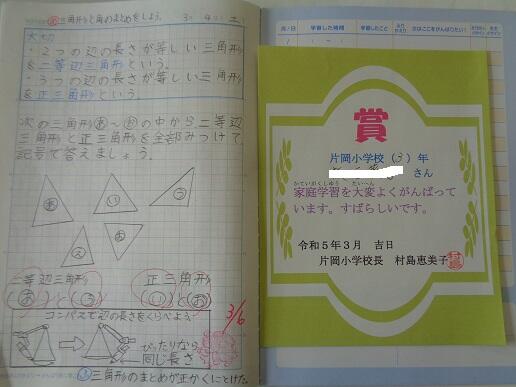 三角形と角のまとめをしよう。 3/4 土
大切
・2つの辺の長さが等しい三角形
を二等辺三角形という。
・3つの辺の長さが等しい三角形
を正三角形という。
次の三角形あ〜おの中から二等辺
三角形と正三角形を全部みつけて、
記号で答えましょう。
あ
い
う
え
お
二等辺三角形
(あ)と(う)
正三角形
(い)と(お)
コンパスで辺の長さをくらべよう
ぴったりなら
同じ長さ
3/6
三角形のまとめが正かくにとけた。
月/日
学習した時間
学習したこと
賞
片岡小学校(3)年
さん
かていがくしゅう たいへん
家庭学習を大変よくがんばって
います。すばらしいです。
令和5年3月 吉日
片岡小学校長 村島恵美子